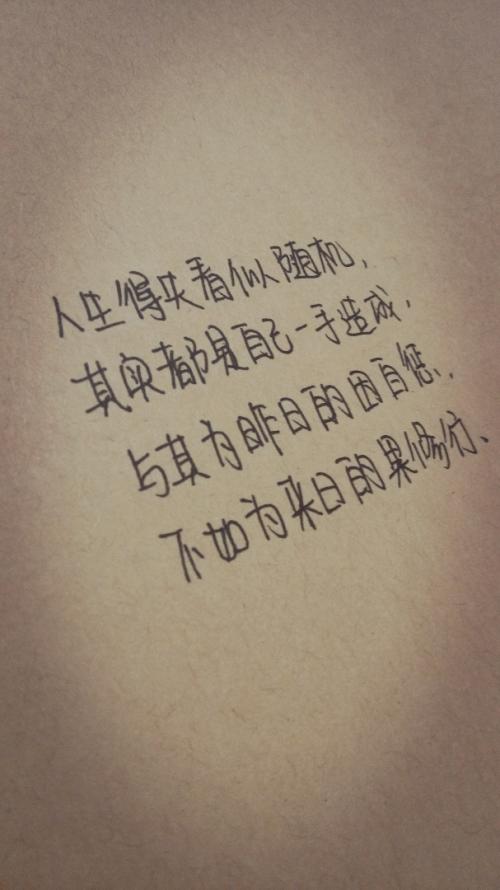 人生得失看似随机,
其实都是自己一手造成,
与其为昨日的因自惩、
不如为来日的果修行、